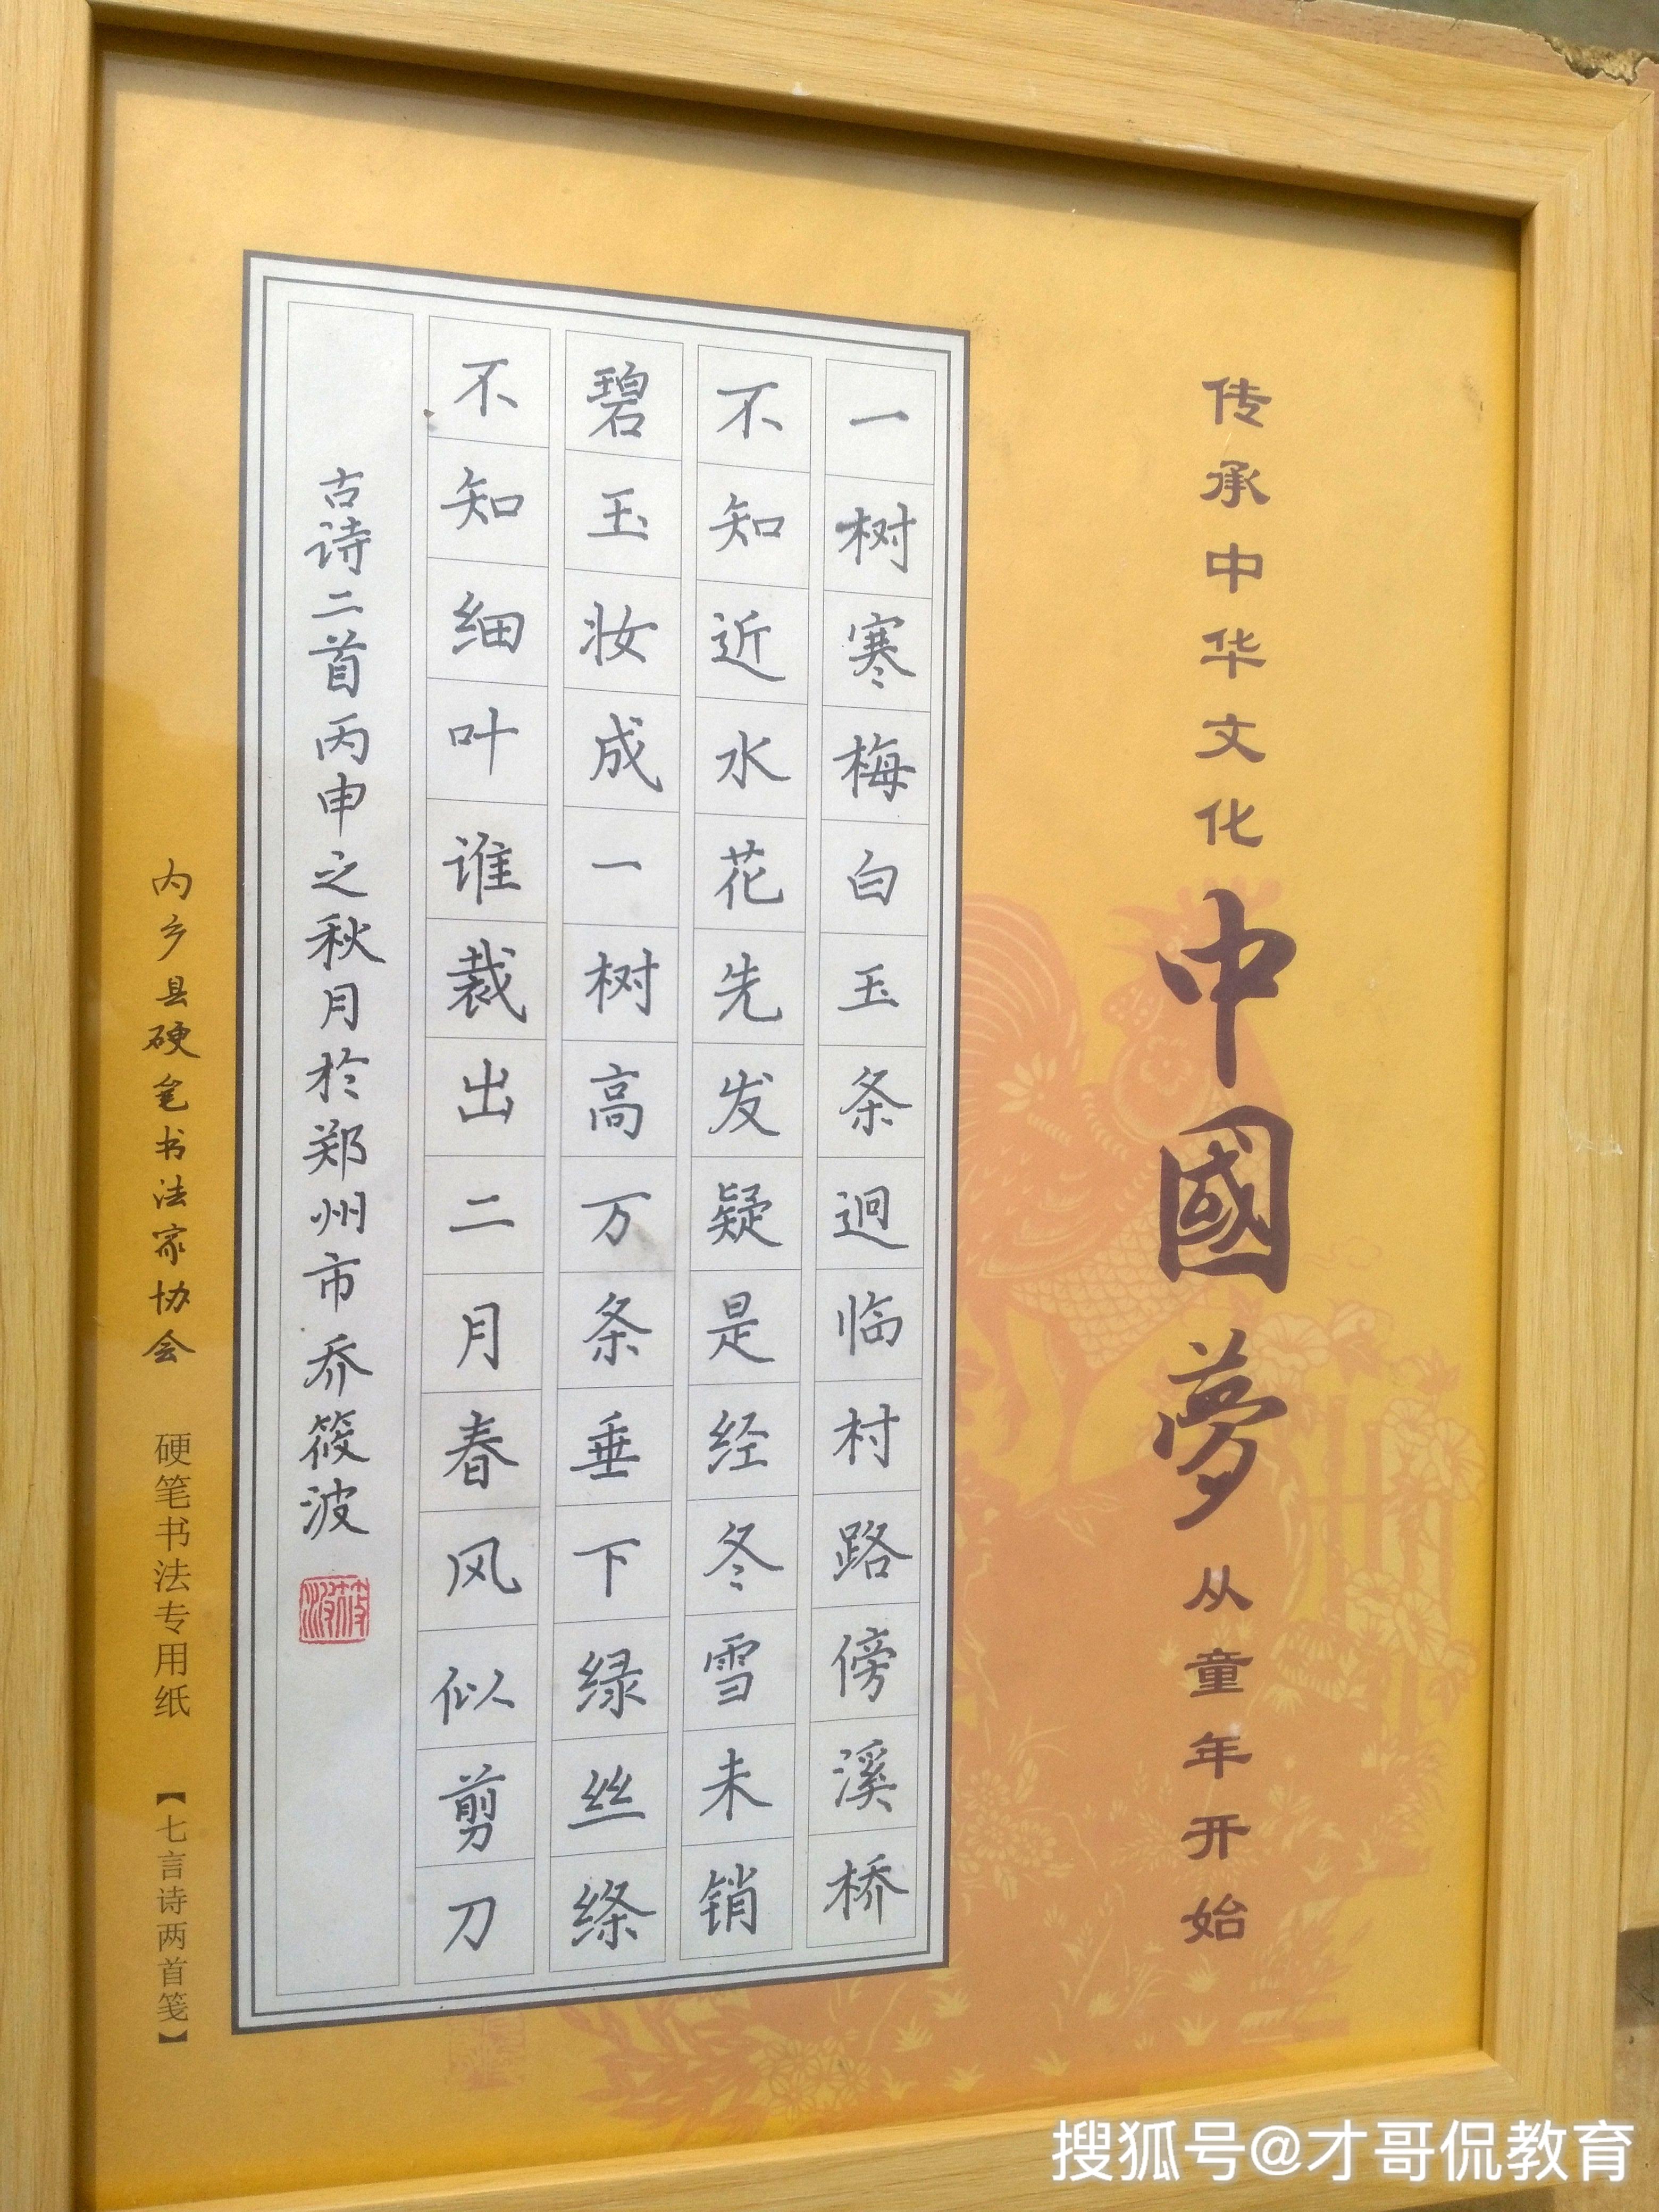 传承中华文化
中國夢
从童年开始
一树寒梅白玉条迥临村路傍溪桥
不知近水花先发疑是经冬雪未销
碧玉妆成一树高万条垂下绿丝绦
不知细叶谁裁出二月春风似剪刀
古诗二首丙申之秋月於郑州市乔筱波
筱波
内乡县硬笔书法家协会 硬笔书法专用纸 【七言诗两首笺】
搜狐号@才哥侃教育